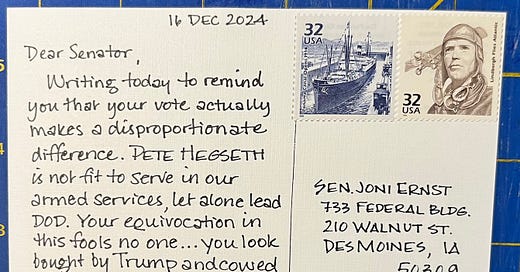 16 DEC 2024
Dear Senator,
Writing today to remind
you that your vote actually
makes a disproportionate
difference. PETE HEGSETH
is not fit to serve in our
armed services, let alone lead
DOD. Your equivocation in
this fools no one... you look
bought by Trump and cowed
32
USA
32
USA
Lindbergh Flies Atlantic
SEN. JONI ERNST
733 FEDERAL BLDG.
210 WALNUT ST.
DES MOINES, IA
50309